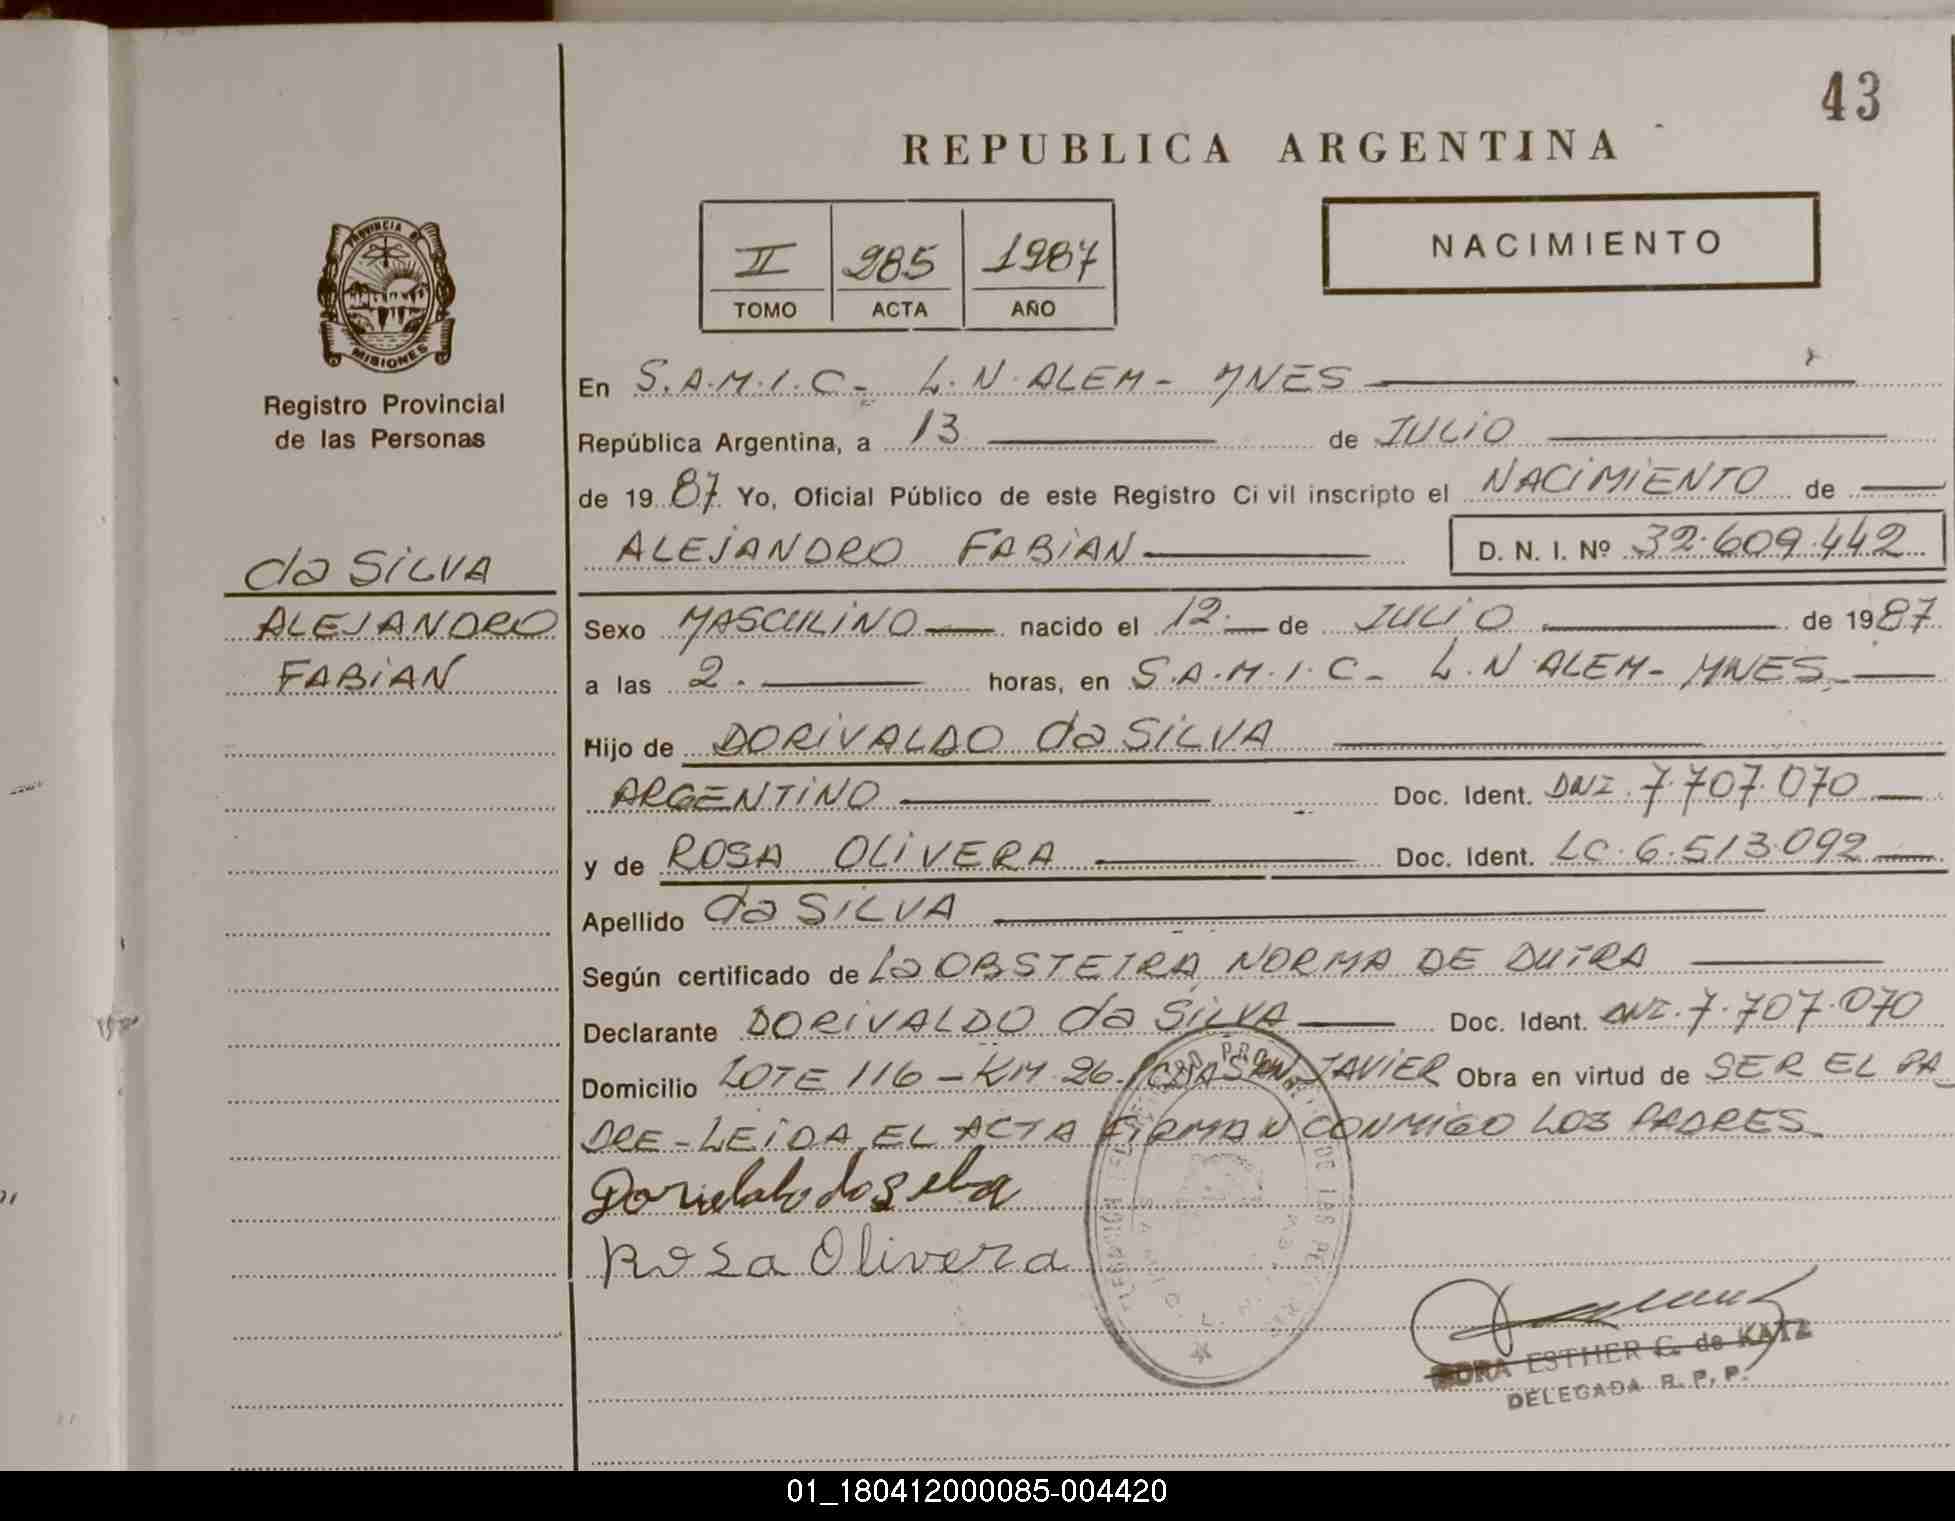 43
REPUBLICA ARGENTINA
II 285 1987
TOMO ACTA AÑO
NACIMIENTO
PROVINCIA DE
MISIONES
Registro Provincial
de las Personas
da SILVA
ALEJANDRO
FABIAN
En S.A.M.I.C- L.N.ALEM- MNES
República Argentina, a 13 de JULIO
de 1987 Yo, Oficial Público de este Registro Civil inscripto el NACIMIENTO de
ALEJANDRO FABIAN D. N. I. Nº 32.609.442
Sexo MASCULINO nacido el 12 de JULIO de 1987
a las 2. horas, en S.A.M.I.C- L.N ALEM- MNES
Hijo de DORIVALDO da SILVA
ARGENTINO Doc. Ident. DNI 7.707.070
y de ROSA OLIVERA Doc. Ident. LC.6.513.092
Apellido da SILVA
Según certificado de La OBSTETRA NORMA DE DUTRA
Declarante DORIVALDO da SILVA Doc. Ident. DNI.7.707.070
Domicilio LOTE 116-KM 26 JAVIER Obra en virtud de SER EL PA
DRE-LEIDA EL ACTA FIRMAN CONMIGO LOS PADRES
Rosa Olivera
ESTHER G. de KATZ
DELEGADA R. P. P.
01_180412000085-004420